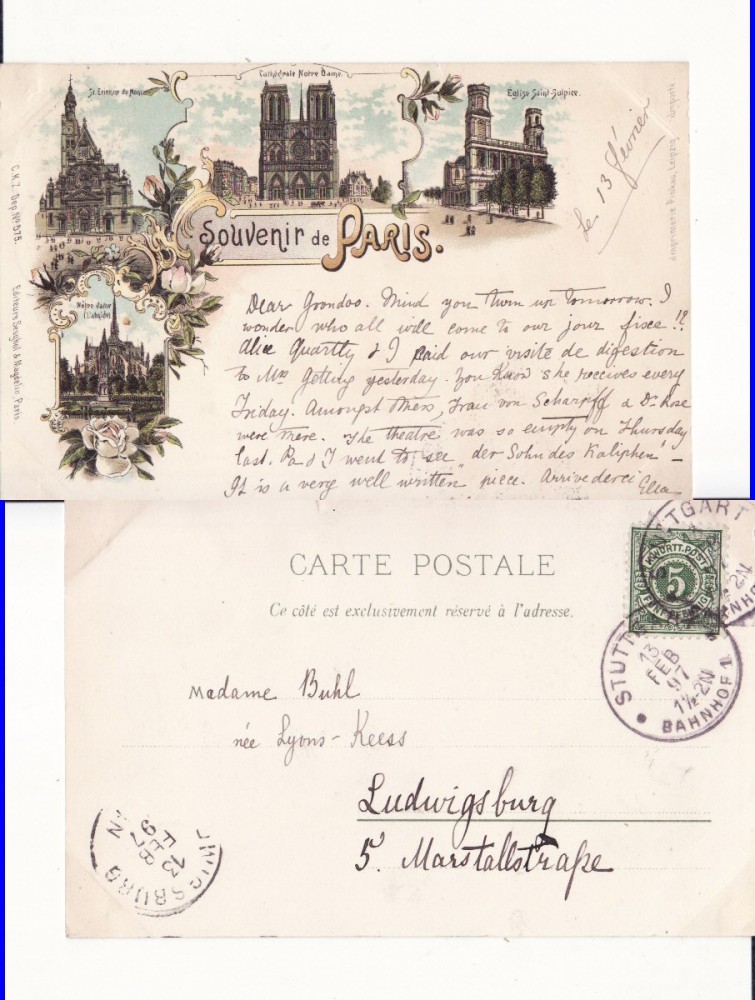 St. Etienne du Mont
Cathédrale Notre Dame.
Eglise Saint-Sulpice.
Le 13 février
Souvenir de PARIS.
Notre Dame
(L'abside)
C.H.Z. Dep. No 575.
Editeurs
Paris
Imprimerie Leipzig
Dear Mind you turn up tomorrow. I
wonder who all will come to our jour fixe!!?
Alice Quartly & I paid our visite de digestion
to Mrs Getting yesterday. You know she receives every
Friday. Amongst others, Frau von Scharpff & Dr Rose
were there. The theatre was so empty on Thursday
last. Pa & I went to see "der Sohn des Kaliphen" –
It is a very well written piece. Arrivederci Ella
CARTE POSTALE
Ce côté est exclusivement réservé à l'adresse.
K. WÜRTT. POST
5
FÜNF PFENNIG
STUTTGART
STUTTGART
13
FEB
97
1½-2N
BAHNHOF 1
Madame Buhl
née Lyons-Keess
Ludwigsburg
5 Marstallstraße
LUDWIGSBURG
13 FEB
97